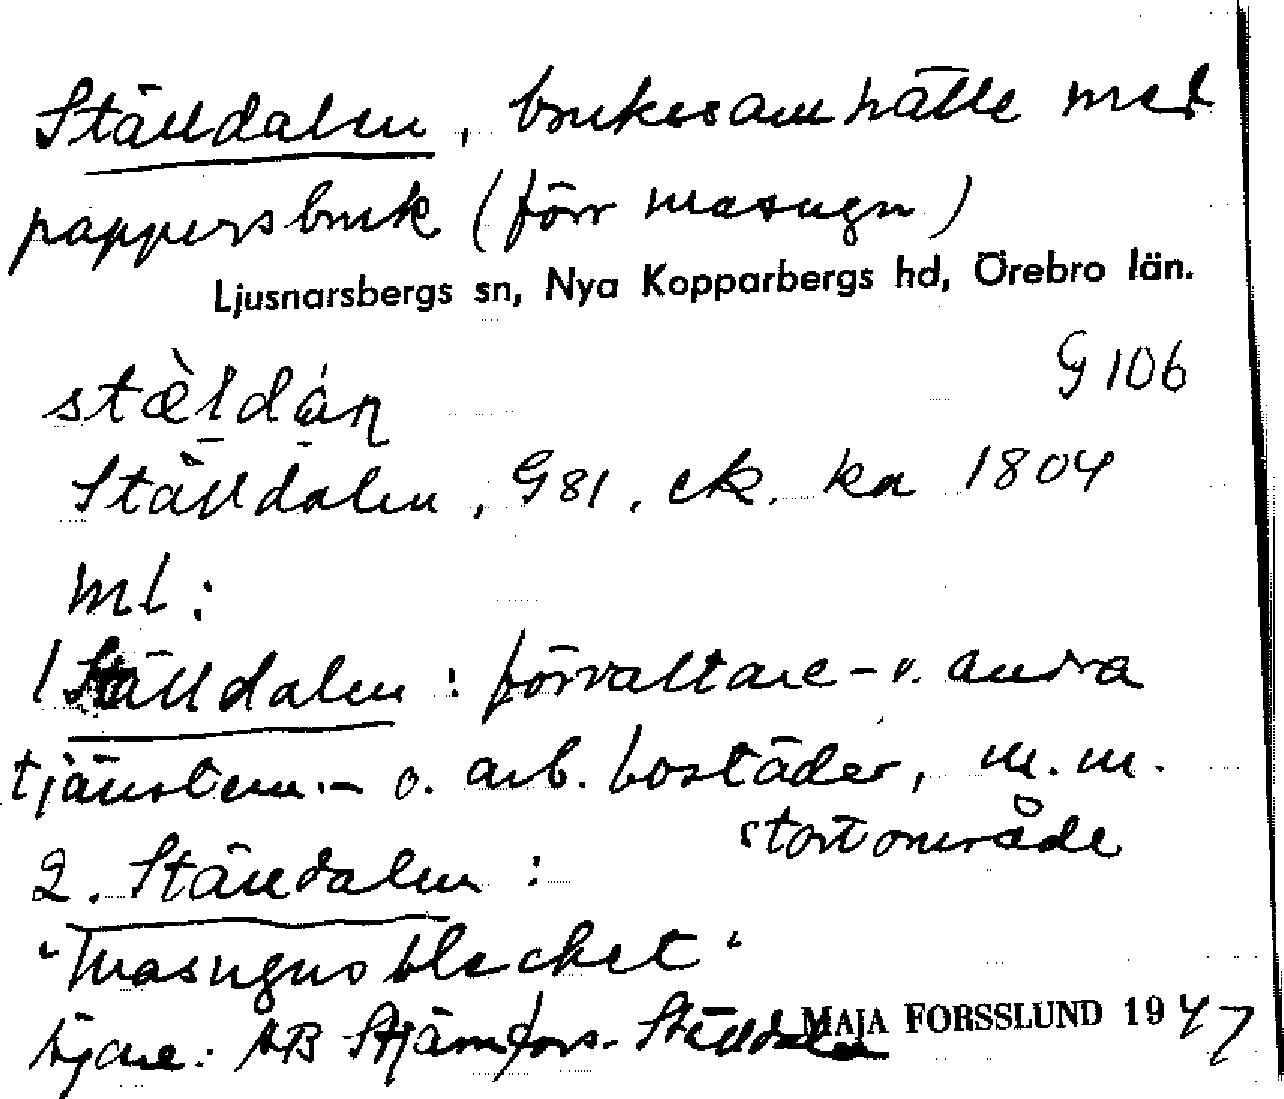 Ställdalen, brukssamhälle med
pappersbruk (förr masugn)
Ljusnarsbergs sn, Nya Kopparbergs hd, Örebro län.
G 106
stæ̀ldán
Ställdalen, G81, ek. ka 1804
ml:
1 Ställdalen: förvaltare- o. andra
tjänstem.- o. arb. bostäder, m.m.
stort område
2. Ställdalen:
"Masugnsblecket"
Äjare: AB Stjärnfors-Ställdalen
MAJA FORSSLUND 1947